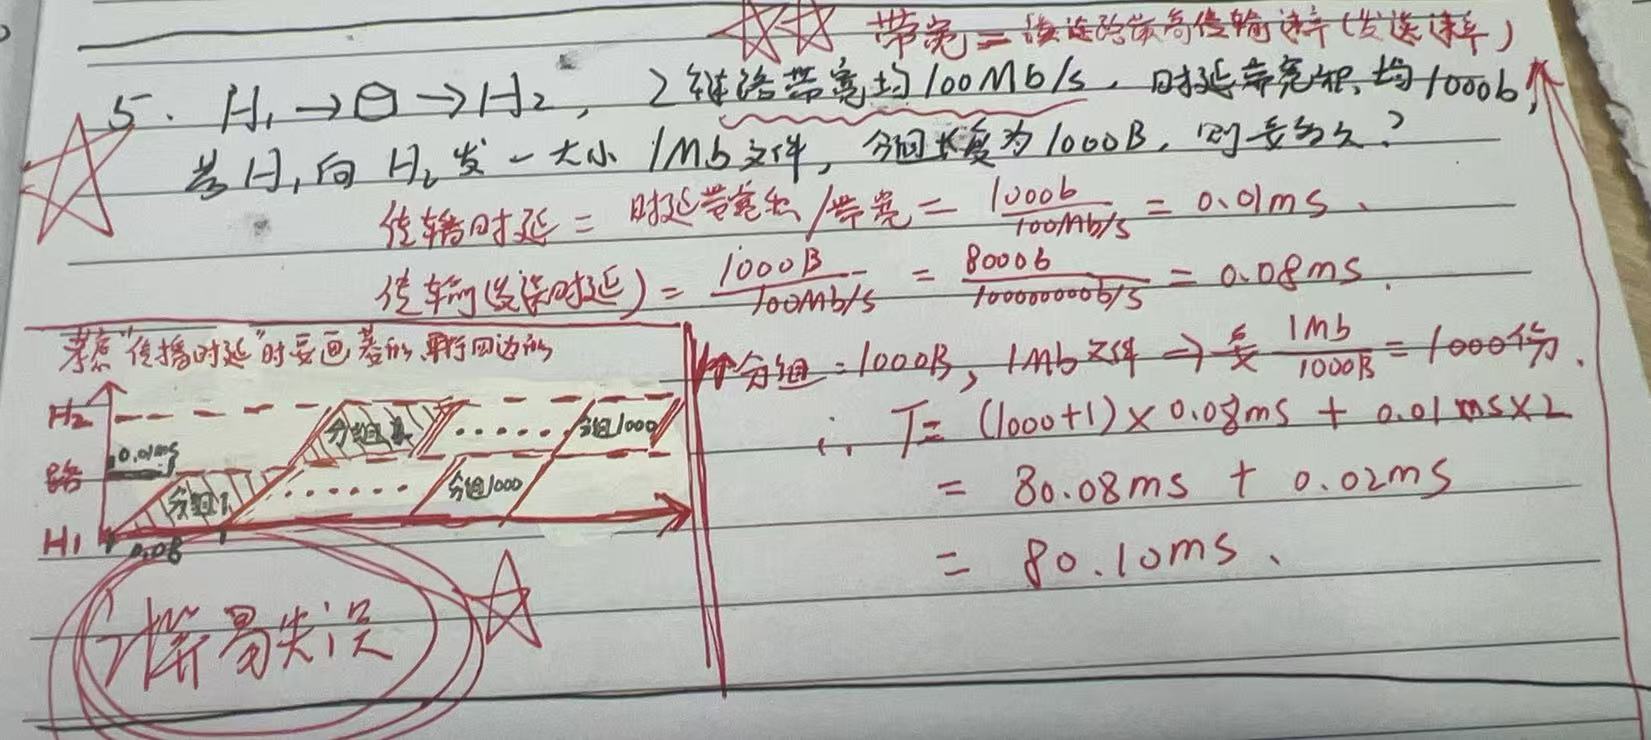 带宽=该链路最高传输速率(发送速率)
5. H₁→日→H₂, 2链路带宽均100Mb/s, 时延带宽积均1000b,
若H₁向H₂发一大小1Mb文件, 分组长度为1000B, 则要多久?
传输时延 = 时延带宽积/带宽 = 1000b/100Mb/s = 0.01ms、
传输(发送时延) = 1000B/100Mb/s = 8000b/100000000b/s = 0.08ms.
考虑"传播时延"时要画 平行四边形
个分组=1000B, 1Mb文件→要 1Mb/1000B = 1000份.
∴ T= (1000+1)×0.08ms + 0.01ms×2
= 80.08ms + 0.02ms
= 80.10ms、
H₂ 分组1 ...... 分组1000
0.01ms
路 分组1 ...... 分组1000
H1 0.08
计算易失误